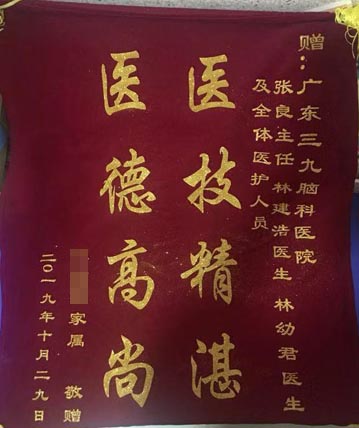 赠：广东三九脑科医院
张良主任 林建浩医生 林幼君医生
及全体医护人员
医技精湛
医德高尚
家属 敬赠
二〇一九年十月二九日